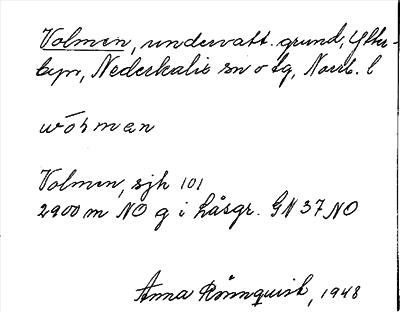 Volmen, undervatt. grund, Ytter-
byn, Nederkalix sn o tg, Norrb. l
wόɿman
Volmen, sjk 101
2900 m NO g i Låsgr. GN 37 NO
Anna Rönnquist, 1948